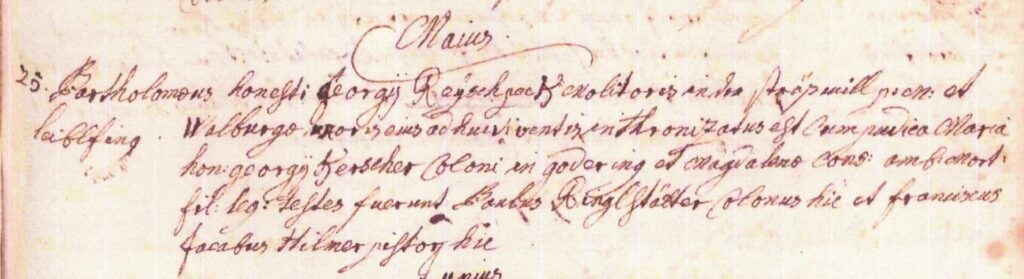 Maius.
25. Bartholomæus honesti Georgÿ Raÿschpeckh molitoris in der ströxmill p: m: et
laiblfing. Walburgæ uxoris eius adhuc viventis inthronizatus est cum pudica Maria
hon: georgÿ Kerscher Coloni in godering et Magdalenæ cons: amb: mort:
fil: leg: testes fuerunt Paulus Ringlstätter Colonus hic et franciscus
Jacobus Hilmer pistor hic
Junius